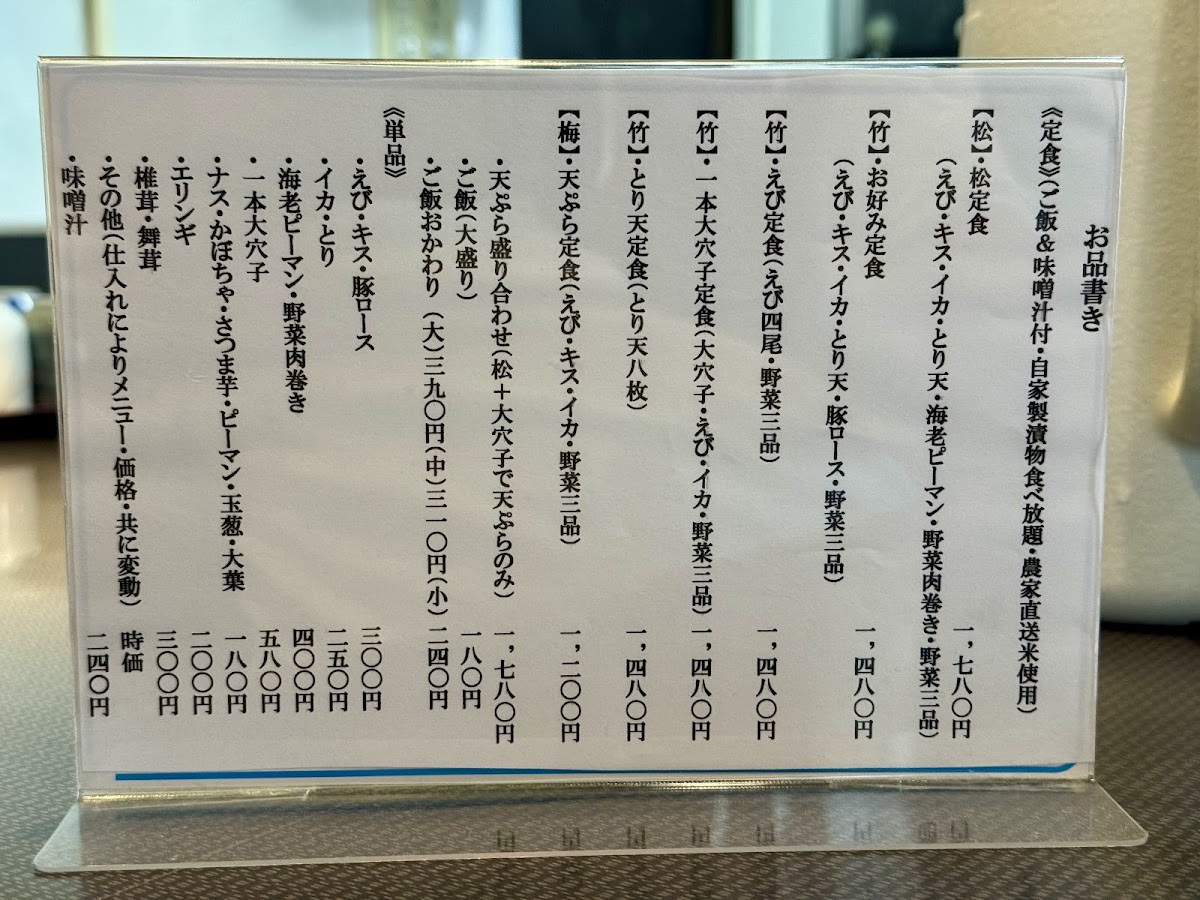 お品書き
《定食》(ご飯&味噌汁付・自家製漬物食べ放題・農家直送米使用)
【松】・松定食 一,七八〇円
(えび・キス・イカ・とり天・海老ピーマン・野菜肉巻き・野菜三品)
【竹】・お好み定食 一,四八〇円
(えび・キス・イカ・とり天・豚ロース・野菜三品)
【竹】・えび定食(えび四尾・野菜三品) 一,四八〇円
【竹】・一本大穴子定食(大穴子・えび・イカ・野菜三品) 一,四八〇円
【竹】・とり天定食(とり天八枚) 一,四八〇円
【梅】・天ぷら定食(えび・キス・イカ・野菜三品) 一,二〇〇円
・天ぷら盛り合わせ(松+大穴子で天ぷらのみ) 一,七八〇円
・ご飯(大盛り) 一八〇円
・ご飯おかわり (大)三九〇円(中)三一〇円(小)二四〇円
《単品》
・えび・キス・豚ロース 三〇〇円
・イカ・とり 二五〇円
・海老ピーマン・野菜肉巻き 四〇〇円
・一本大穴子 五八〇円
・ナス・かぼちゃ・さつま芋・ピーマン・玉葱・大葉 一八〇円
・エリンギ 二〇〇円
・椎茸・舞茸 三〇〇円
・その他(仕入れによりメニュー・価格・共に変動) 時価
・味噌汁 二四〇円